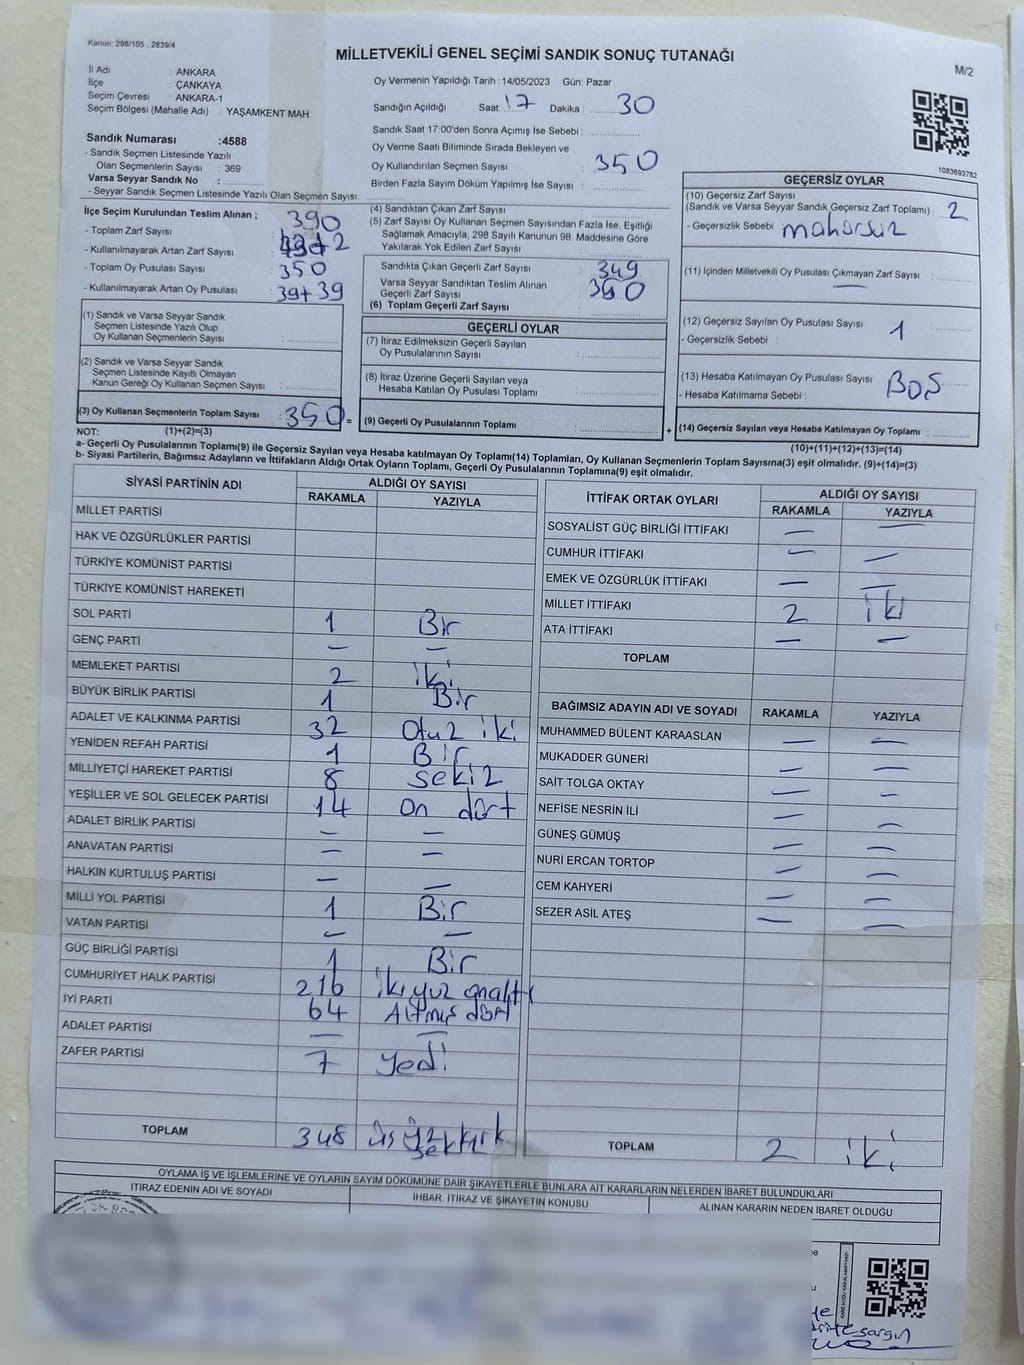 Kanun: 298/105 , 2839/4
MİLLETVEKİLİ GENEL SEÇİMİ SANDIK SONUÇ TUTANAĞI
M/2
İl Adı : ANKARA
İlçe : ÇANKAYA
Seçim Çevresi : ANKARA-1
Seçim Bölgesi (Mahalle Adı) : YAŞAMKENT MAH.
Sandık Numarası :4588
- Sandık Seçmen Listesinde Yazılı
Olan Seçmenlerin Sayısı : 369
Varsa Seyyar Sandık No :
- Seyyar Sandık Seçmen Listesinde Yazılı Olan Seçmen Sayısı:
Oy Vermenin Yapıldığı Tarih : 14/05/2023 Gün: Pazar
Sandığın Açıldığı Saat : 17 Dakika : 30
Sandık Saat 17:00'den Sonra Açımış İse Sebebi :
Oy Verme Saati Bitiminde Sırada Bekleyen ve
Oy Kullandırılan Seçmen Sayısı : 350
Birden Fazla Sayım Döküm Yapılmış İse Sayısı :
1083693782
İlçe Seçim Kurulundan Teslim Alınan ;
- Toplam Zarf Sayısı : 390
- Kullanılmayarak Artan Zarf Sayısı
- Toplam Oy Pusulası Sayısı : 350
- Kullanılmayarak Artan Oy Pusulası : 39+39
(1) Sandık ve Varsa Seyyar Sandık
Seçmen Listesinde Yazılı Olup
Oy Kullanan Seçmenlerin Sayısı :
(2) Sandık ve Varsa Seyyar Sandık
Seçmen Listesinde Kayıtlı Olmayan
Kanun Gereği Oy Kullanan Seçmen Sayısı :
(3) Oy Kullanan Seçmenlerin Toplam Sayısı : 350 =
(4) Sandıktan Çıkan Zarf Sayısı :
(5) Zarf Sayısı Oy Kullanan Seçmen Sayısından Fazla İse, Eşitliği
Sağlamak Amacıyla, 298 Sayılı Kanunun 98. Maddesine Göre
Yakılarak Yok Edilen Zarf Sayısı :
Sandıkta Çıkan Geçerli Zarf Sayısı : 349
Varsa Seyyar Sandıktan Teslim Alınan
Geçerli Zarf Sayısı :
(6) Toplam Geçerli Zarf Sayısı
GEÇERLİ OYLAR
(7) İtiraz Edilmeksizin Geçerli Sayılan
Oy Pusulalarının Sayısı :
(8) İtiraz Üzerine Geçerli Sayılan veya
Hesaba Katılan Oy Pusulası Toplamı :
(9) Geçerli Oy Pusulalarının Toplamı : +
GEÇERSİZ OYLAR
(10) Geçersiz Zarf Sayısı
(Sandık ve Varsa Seyyar Sandık Geçersiz Zarf Toplamı) : 2
- Geçersizlik Sebebi : mühürsüz
(11) İçinden Milletvekili Oy Pusulası Çıkmayan Zarf Sayısı : —
(12) Geçersiz Sayılan Oy Pusulası Sayısı : 1
- Geçersizlik Sebebi :
(13) Hesaba Katılmayan Oy Pusulası Sayısı : BOŞ
- Hesaba Katılmama Sebebi :
(14) Geçersiz Sayılan veya Hesaba Katılmayan Oy Toplamı :
NOT: (1)+(2)=(3)
(10)+(11)+(12)+(13)=(14)
a- Geçerli Oy Pusulalarının Toplamı(9) ile Geçersiz Sayılan veya Hesaba katılmayan Oy Toplamı(14) Toplamları, Oy Kullanan Seçmenlerin Toplam Sayısına(3) eşit olmalıdır. (9)+(14)=(3)
b- Siyasi Partilerin, Bağımsız Adayların ve İttifakların Aldığı Ortak Oyların Toplamı, Geçerli Oy Pusulalarının Toplamına(9) eşit olmalıdır.
SİYASİ PARTİNİN ADI ALDIĞI OY SAYISI
RAKAMLA YAZIYLA
MİLLET PARTİSİ
HAK VE ÖZGÜRLÜKLER PARTİSİ
TÜRKİYE KOMÜNİST PARTİSİ
TÜRKİYE KOMÜNİST HAREKETİ
SOL PARTİ 1 Bir
GENÇ PARTİ — —
MEMLEKET PARTİSİ 2 iki
BÜYÜK BİRLİK PARTİSİ 1 Bir
ADALET VE KALKINMA PARTİSİ 32 Otuz iki
YENİDEN REFAH PARTİSİ 1 Bir
MİLLİYETÇİ HAREKET PARTİSİ 8 sekiz
YEŞİLLER VE SOL GELECEK PARTİSİ 14 on dört
ADALET BİRLİK PARTİSİ — —
ANAVATAN PARTİSİ — —
HALKIN KURTULUŞ PARTİSİ — —
MİLLİ YOL PARTİSİ 1 Bir
VATAN PARTİSİ — —
GÜÇ BİRLİĞİ PARTİSİ 1 Bir
CUMHURİYET HALK PARTİSİ 216 ikiyüz onaltı
İYİ PARTİ 64 Altmış dört
ADALET PARTİSİ — —
ZAFER PARTİSİ 7 yedi
TOPLAM 348
İTTİFAK ORTAK OYLARI ALDIĞI OY SAYISI
RAKAMLA YAZIYLA
SOSYALİST GÜÇ BİRLİĞİ İTTİFAKI — —
CUMHUR İTTİFAKI — —
EMEK VE ÖZGÜRLÜK İTTİFAKI — —
MİLLET İTTİFAKI 2 iki
ATA İTTİFAKI — —
TOPLAM
BAĞIMSIZ ADAYIN ADI VE SOYADI RAKAMLA YAZIYLA
MUHAMMED BÜLENT KARAASLAN — —
MUKADDER GÜNERİ — —
SAİT TOLGA OKTAY — —
NEFİSE NESRİN İLİ — —
GÜNEŞ GÜMÜŞ — —
NURİ ERCAN TORTOP — —
CEM KAHYERİ — —
SEZER ASİL ATEŞ — —
TOPLAM 2 iki
OYLAMA İŞ VE İŞLEMLERİNE VE OYLARIN SAYIM DÖKÜMÜNE DAİR ŞİKAYETLERLE BUNLARA AİT KARARLARIN NELERDEN İBARET BULUNDUKLARI
İTİRAZ EDENİN ADI VE SOYADI İHBAR, İTİRAZ VE ŞİKAYETİN KONUSU ALINAN KARARIN NEDEN İBARET OLDUĞU